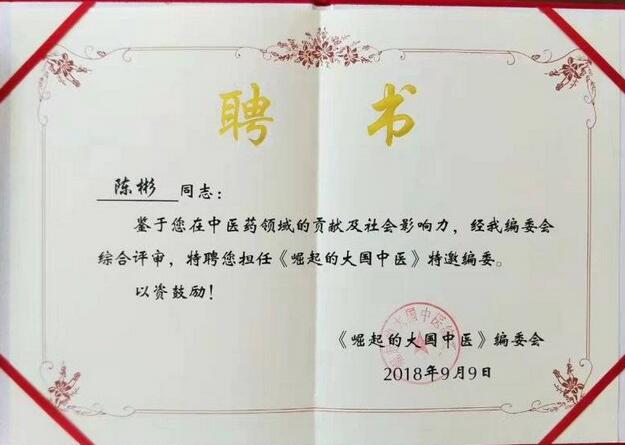 聘 书
陈彬 同志：
鉴于您在中医药领域的贡献及社会影响力，经我编委会
综合评审，特聘您担任《崛起的大国中医》特邀编委。
以资鼓励！
《崛起的大国中医》编委会
2018年9月9日